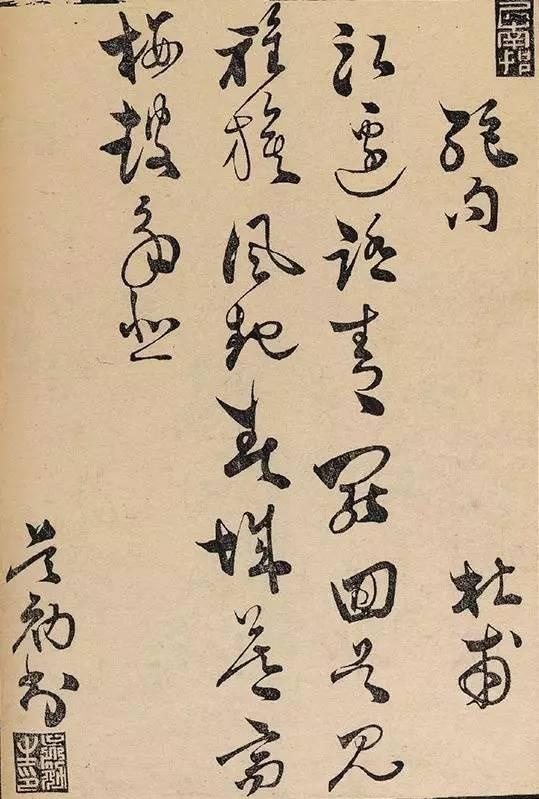 絕句 杜甫
江邊踏青罷回首見
旌旗風起春城暮高
樓鼓角悲
書